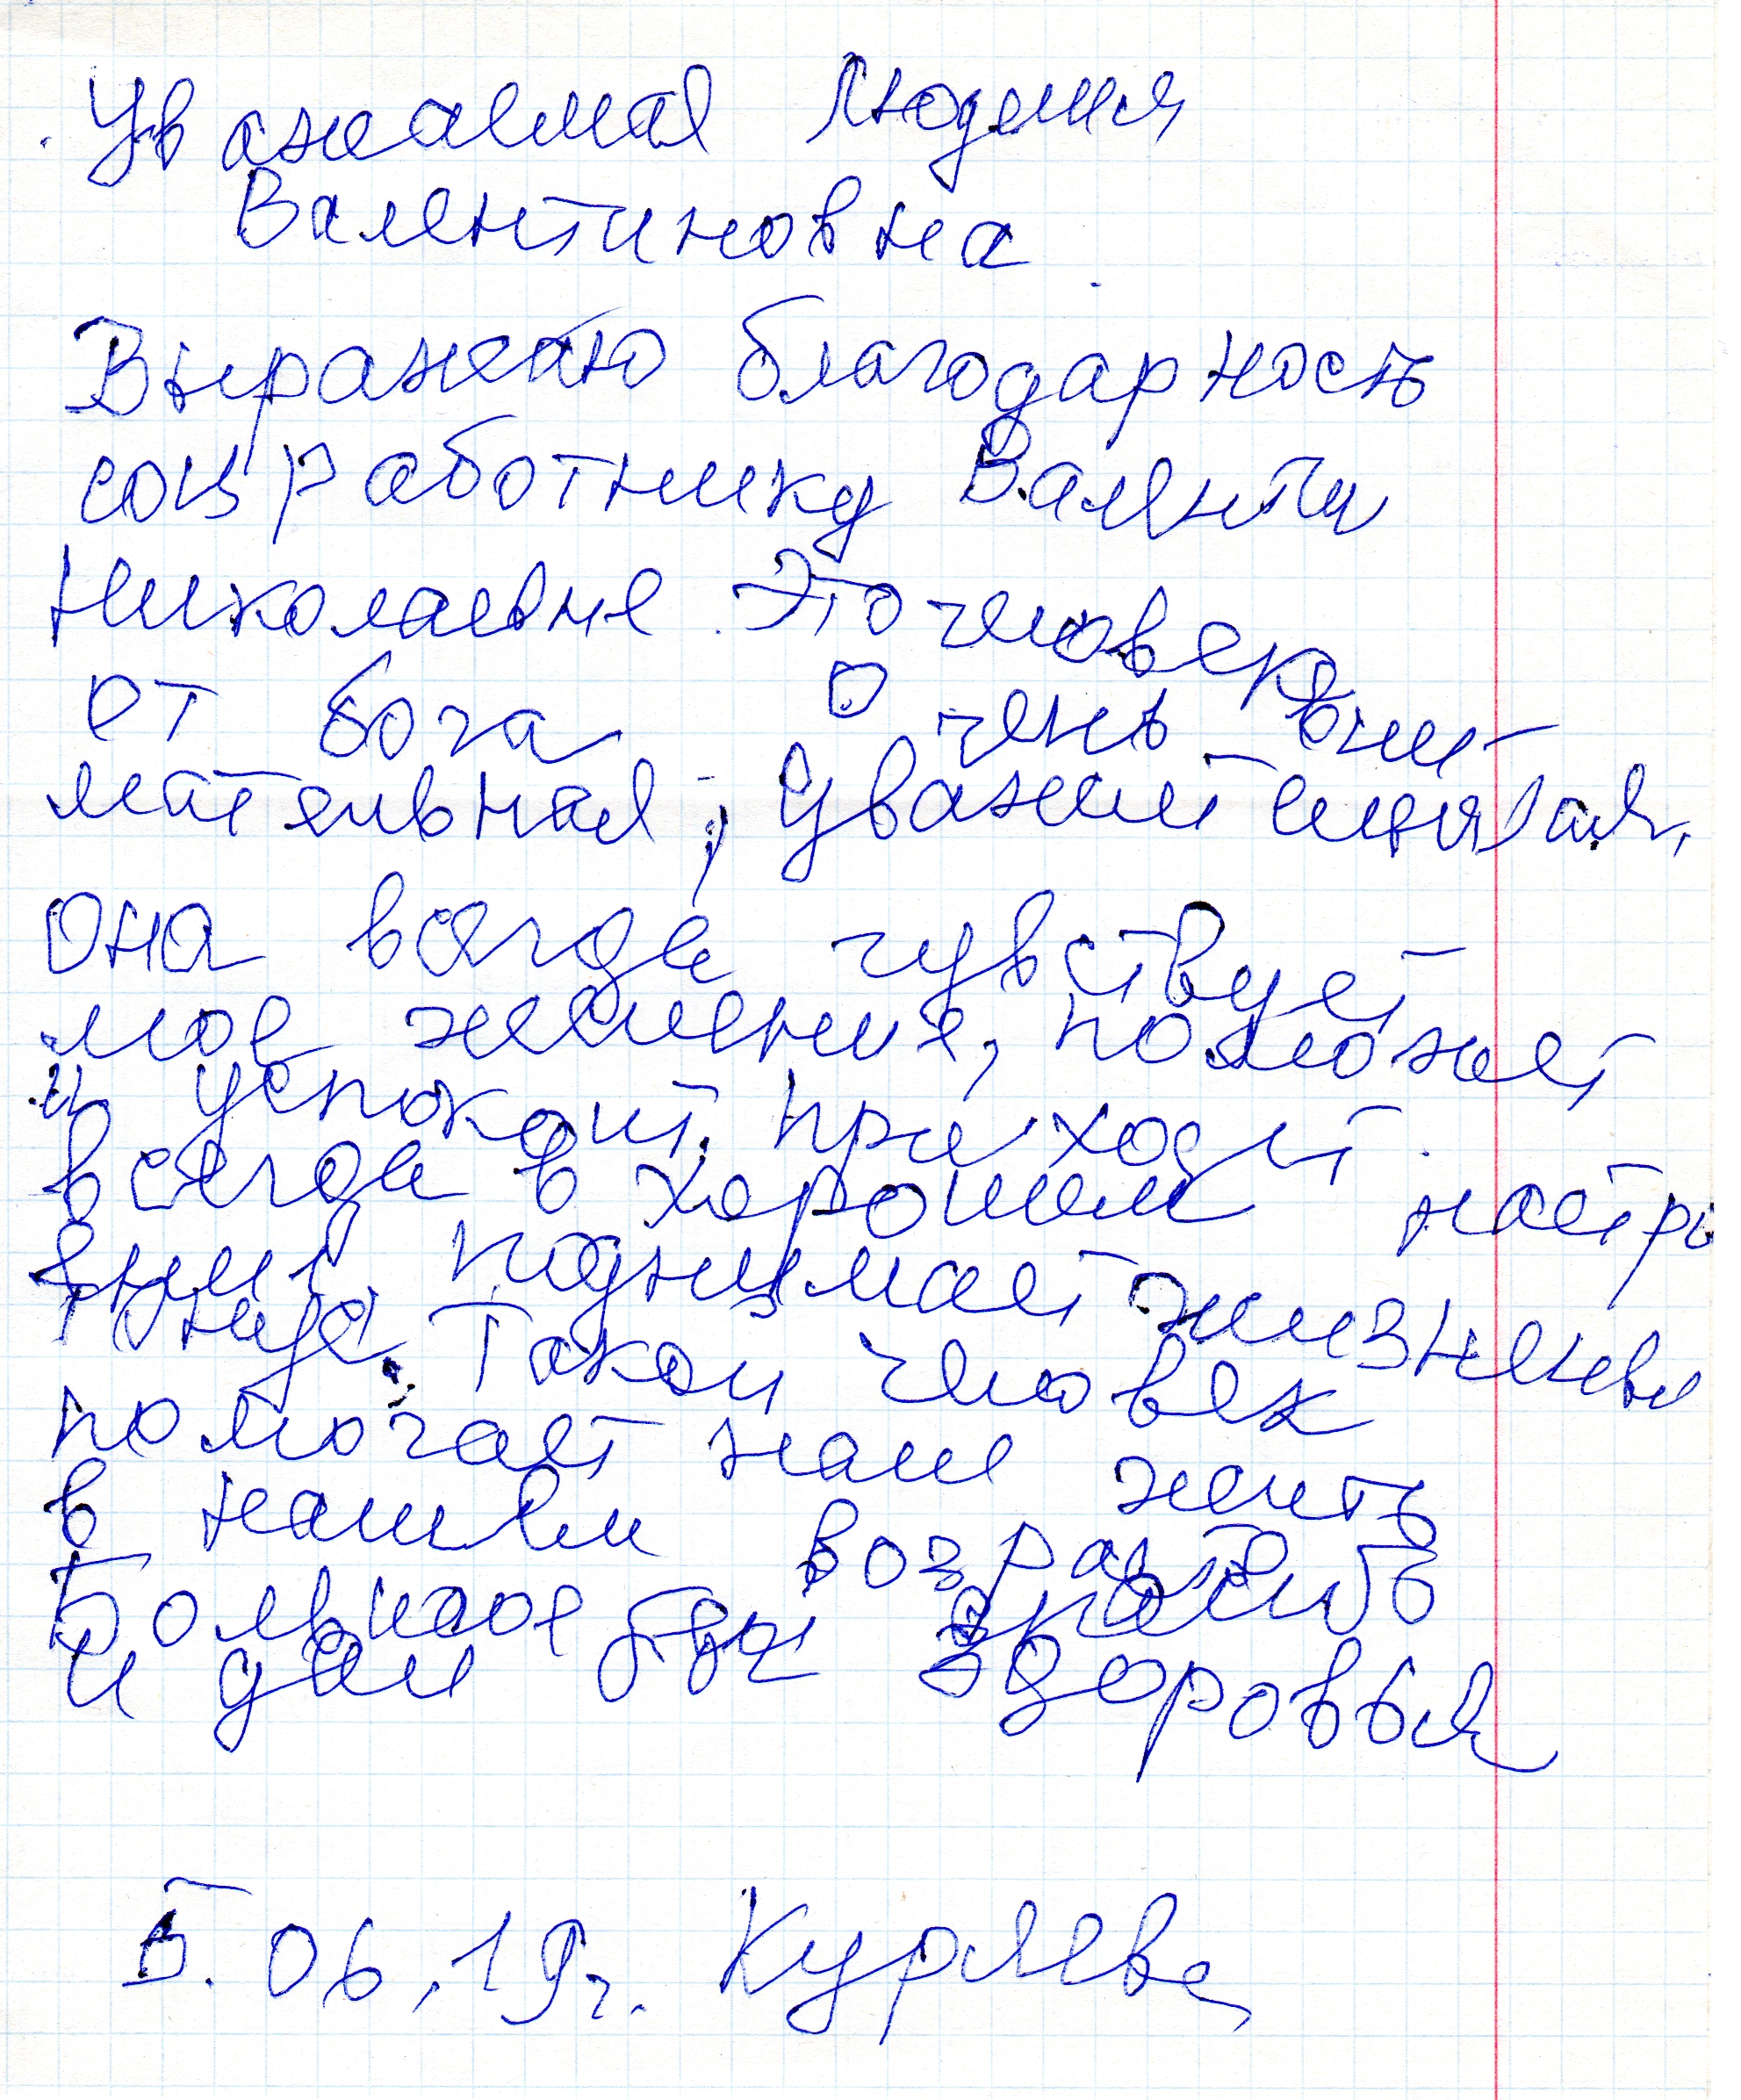 Уважаемая Людмила
Валентиновна
Выражаю благодарность
соц работнику Валенти
Николаевне. Это человек
от бога Очень вни
мательная, уважительная,
она всегда чувствует
мое желение, поможет
и успокоит, приходит
всегда в хорошем настро
ении, поднимает жизненны
тонус. Такой человек
помогает нам жить
в нашем возрасте
Большое спасибо
и дай бог здоровья
5.06.19г. Куряева